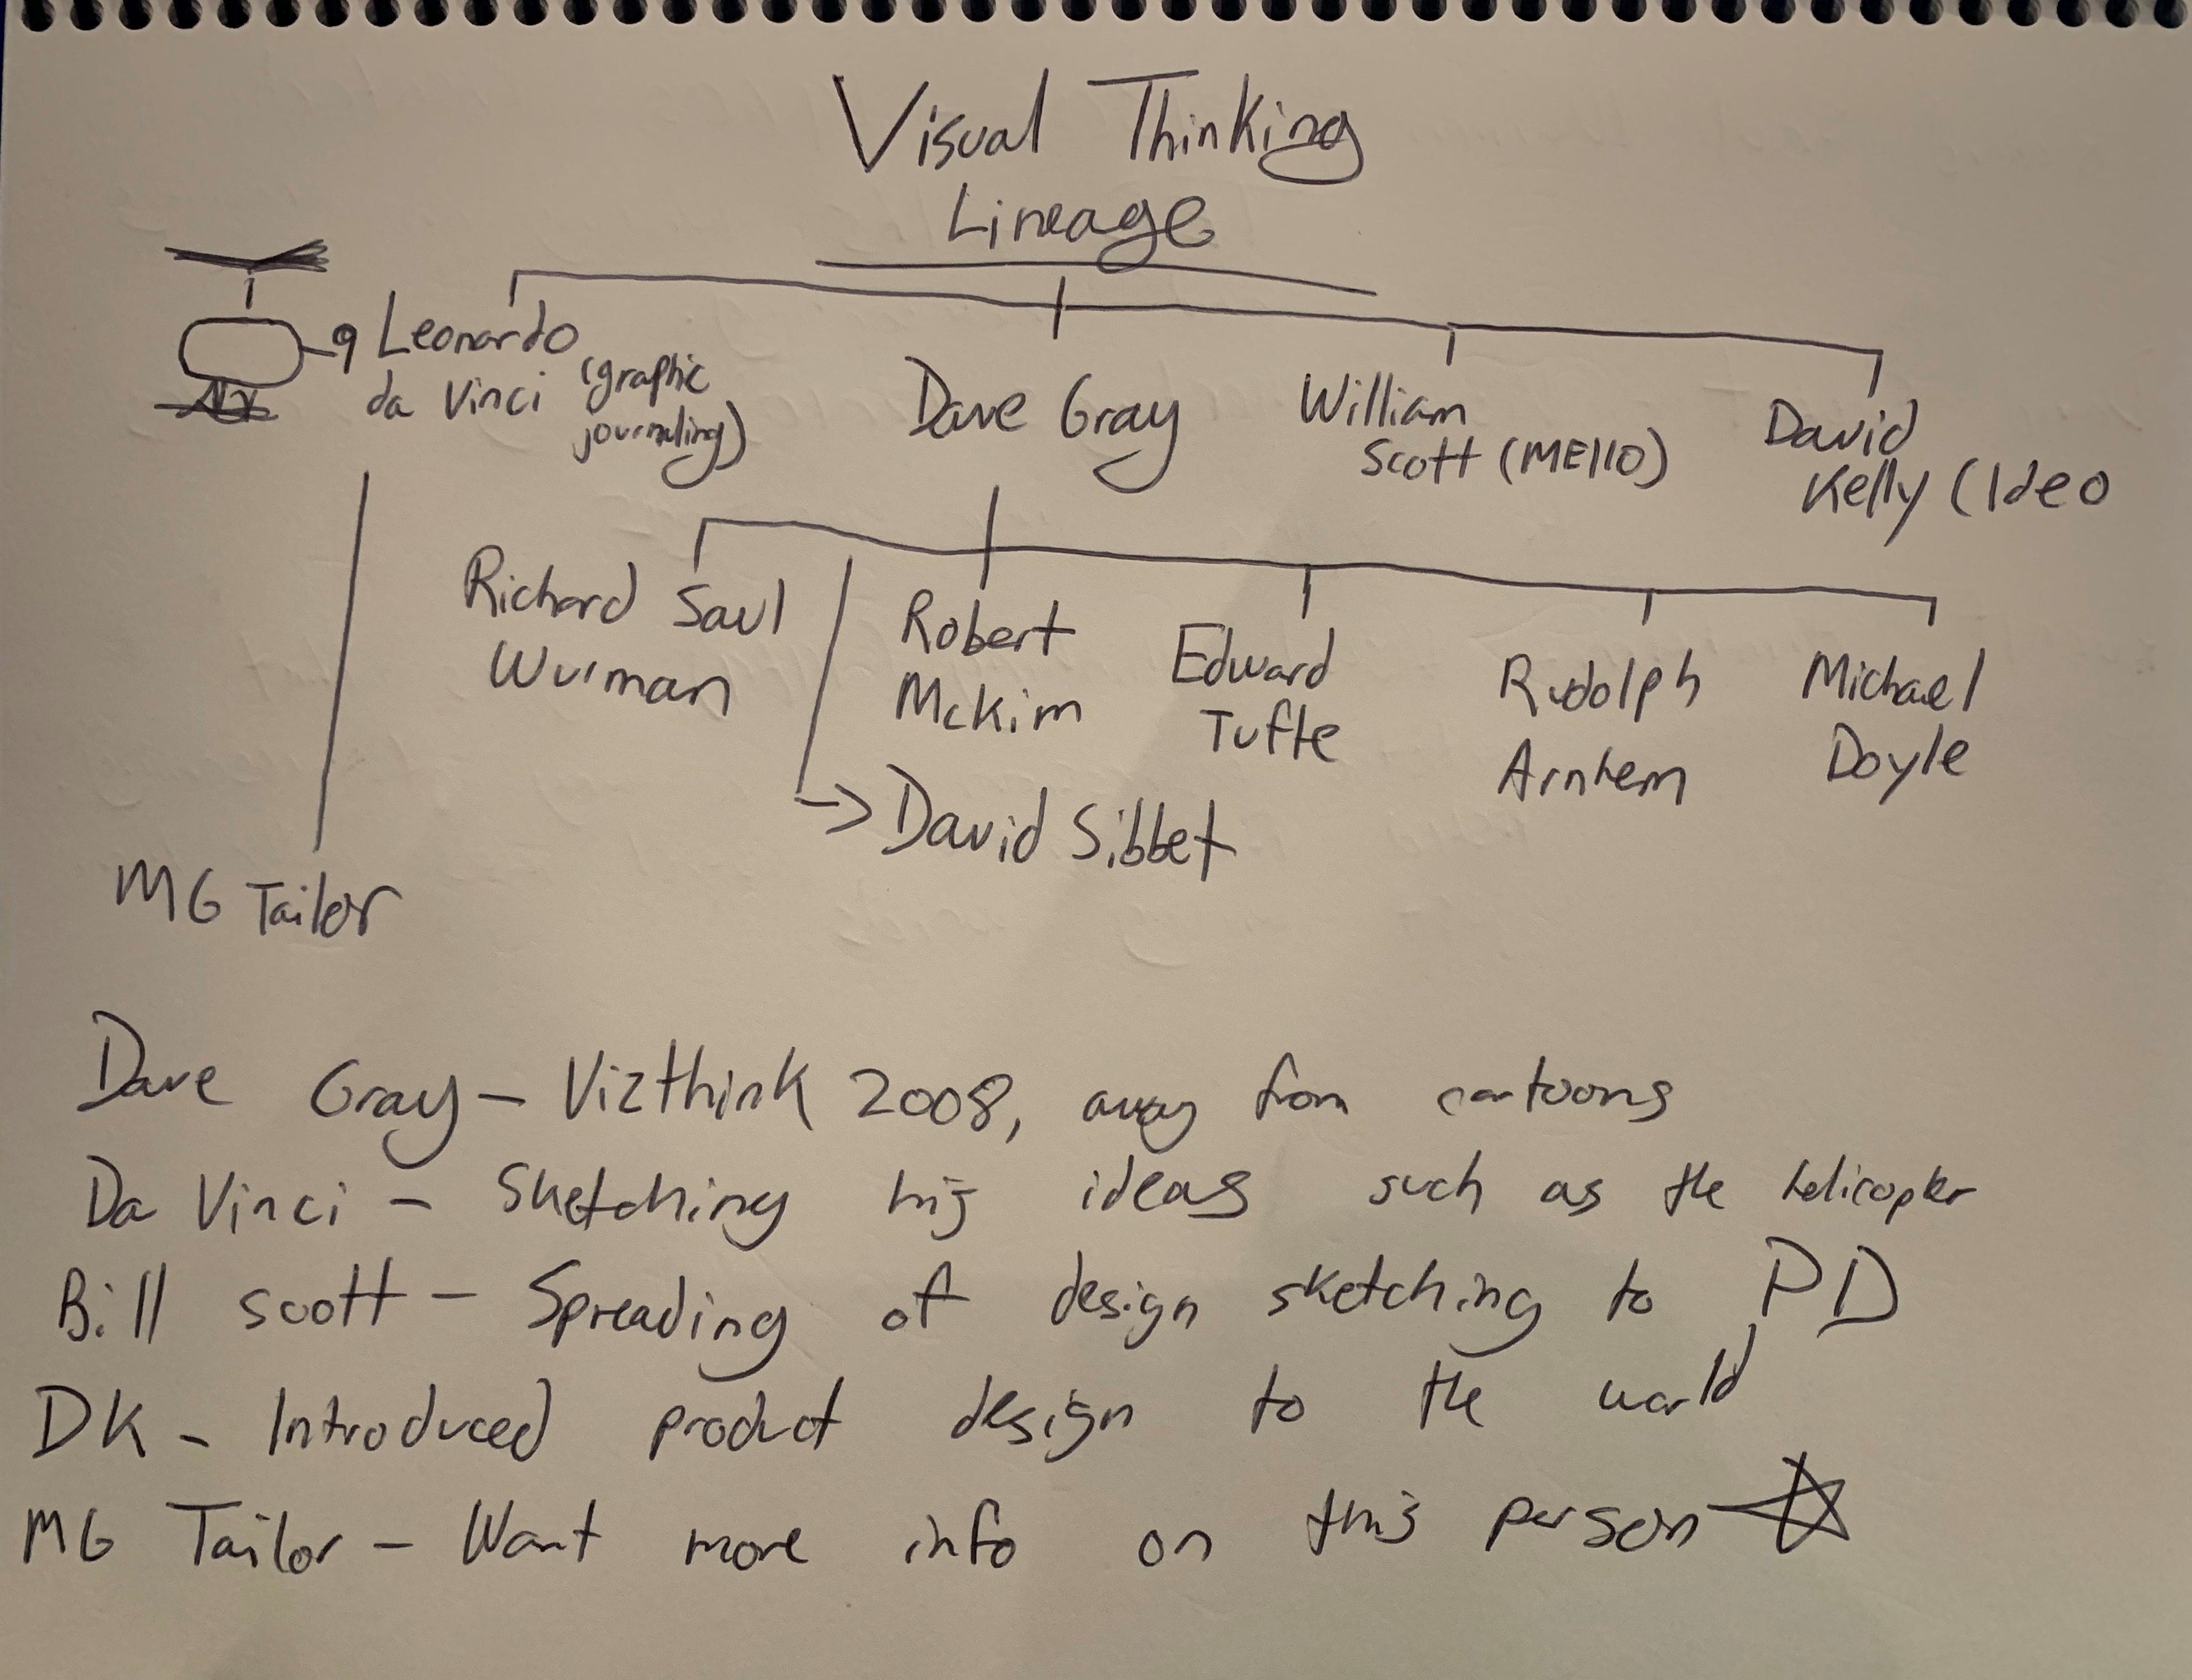 Visual Thinking
Lineage
Leonardo
da Vinci (graphic
journaling)
Dave Gray
William
Scott (MEllO)
David
Kelly (Ideo
Richard Saul
Wurman
Robert
McKim
Edward
Tufte
Rudolph
Arnhem
Michael
Doyle
David Sibbet
MG Tailor
Dave Gray – Vizthink 2008, away from cartoons
Da Vinci – Sketching his ideas such as the helicopter
Bill scott – Spreading of design sketching to PD
DK – Introduced product design to the world
MG Tailor – Want more info on this person